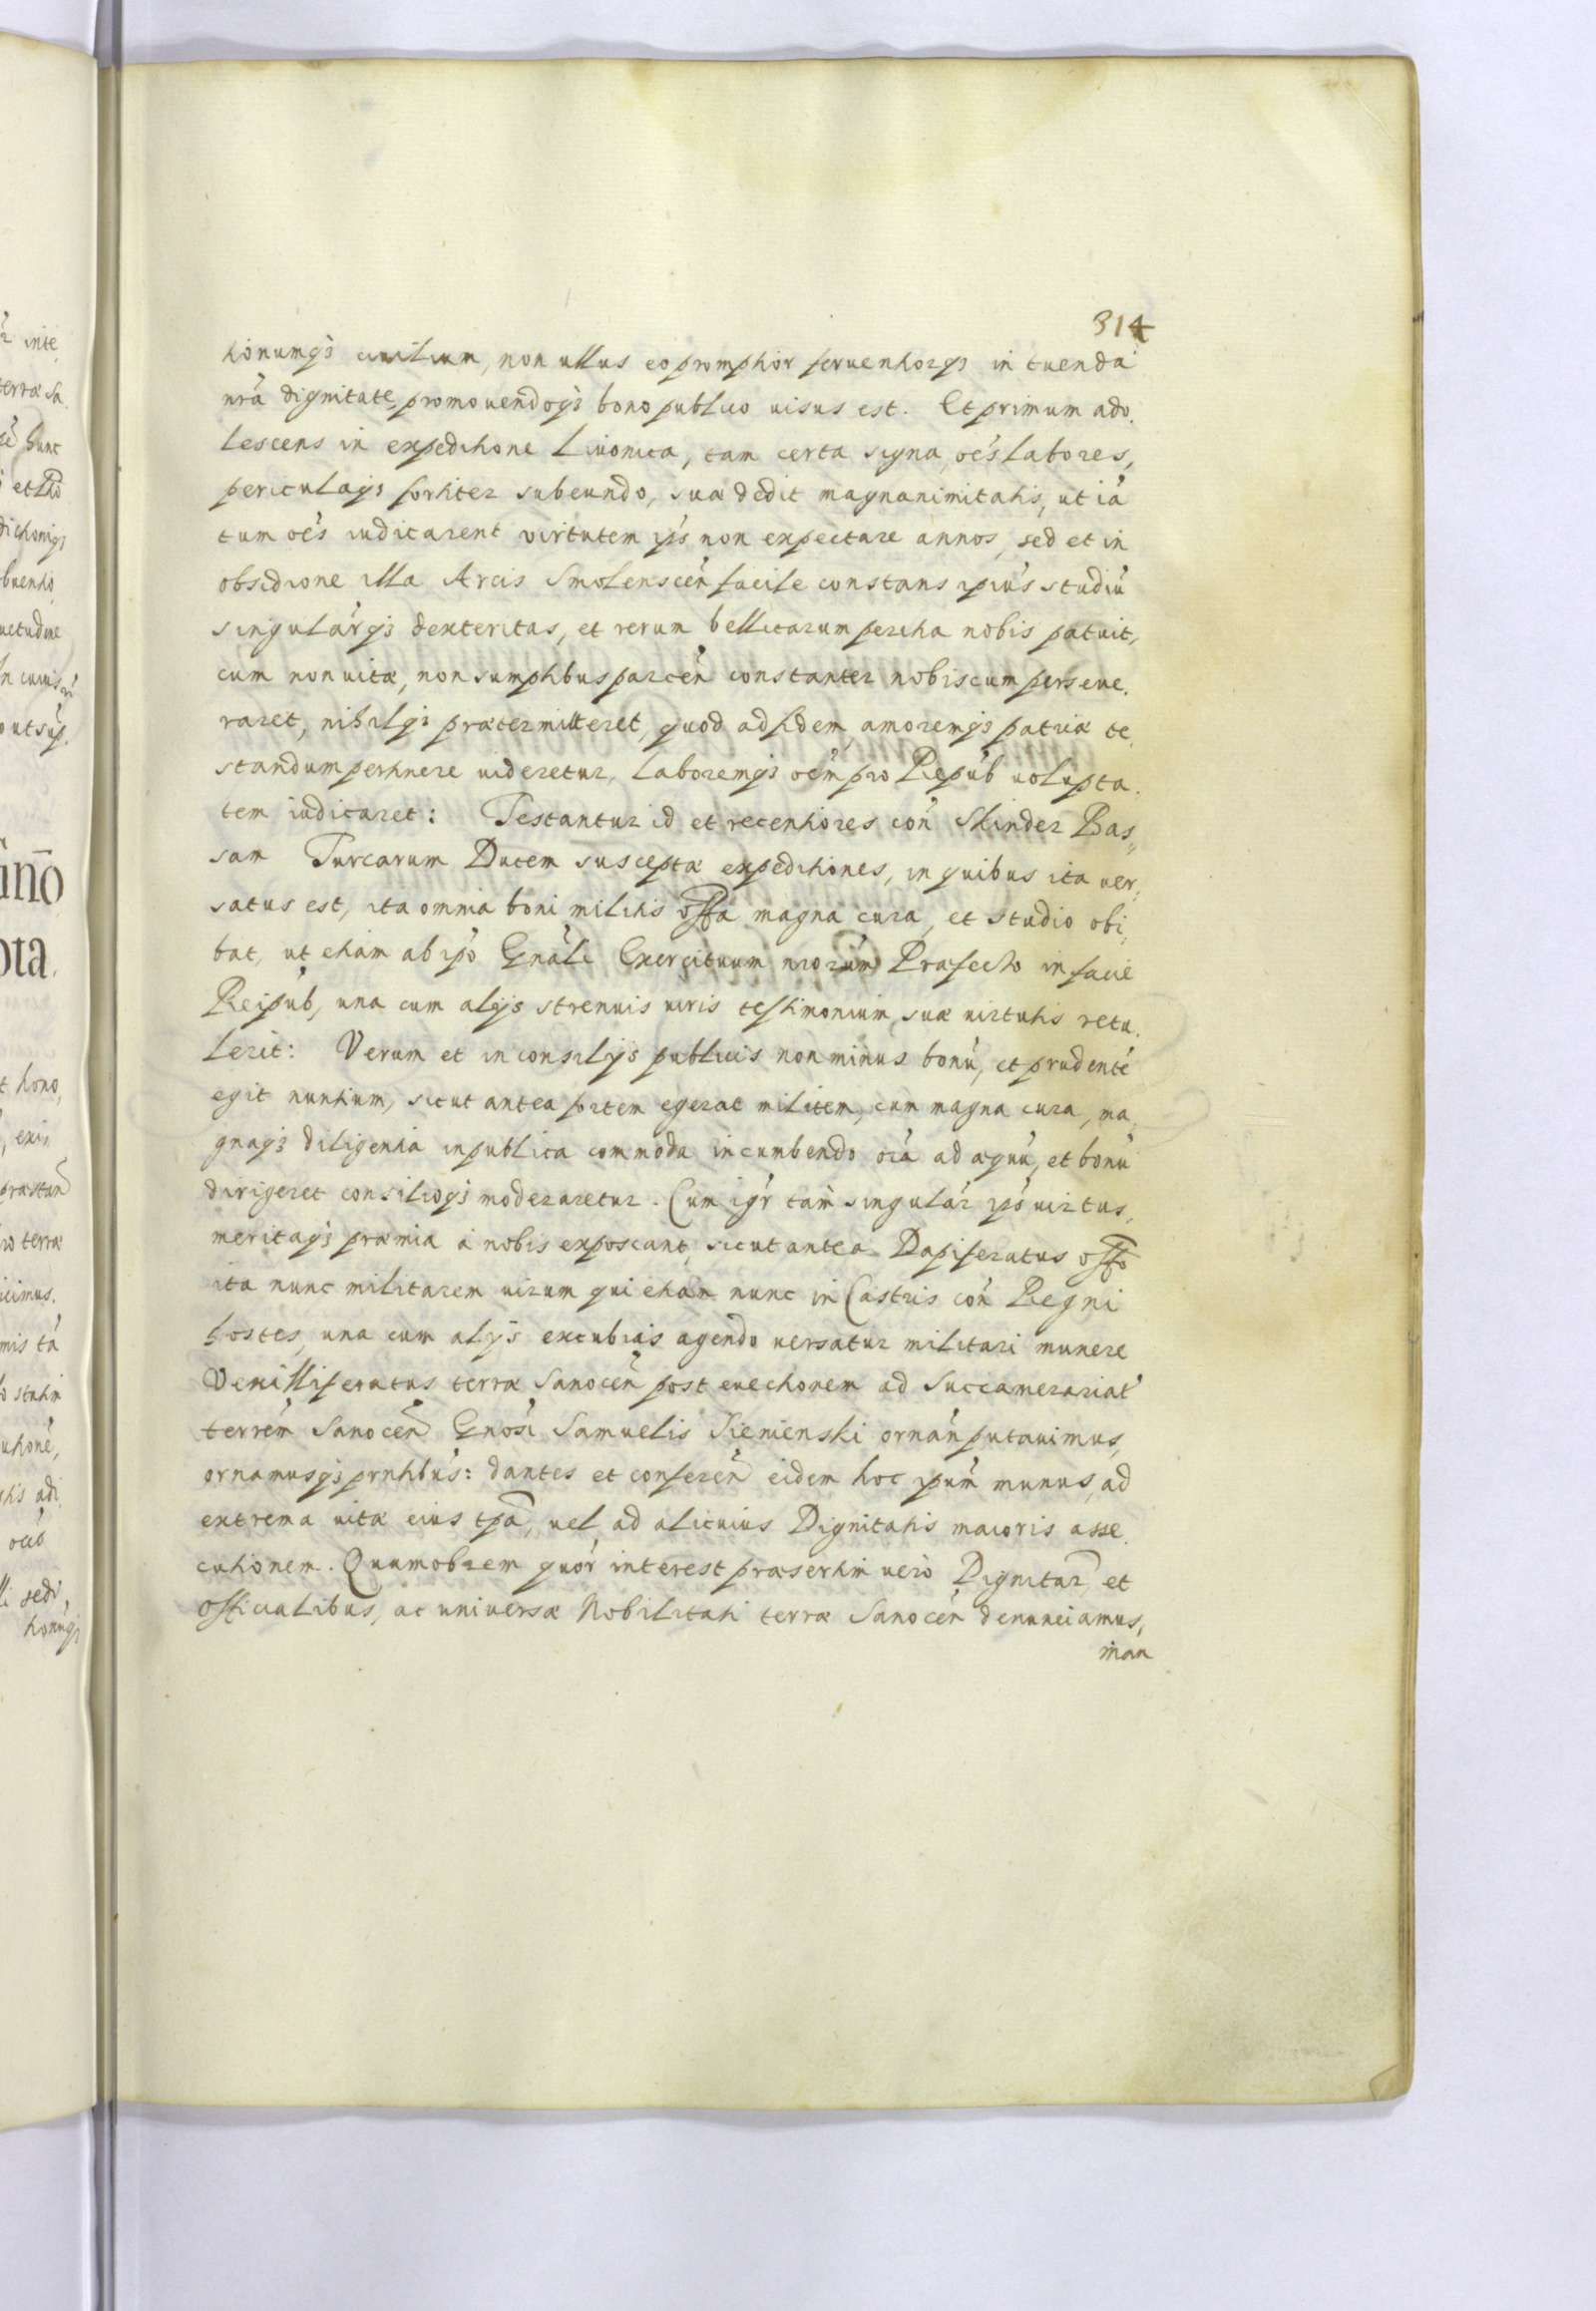 314
tionumq3 ciuilium, non ullus eo promptior feruentiorq3 in tuenda
nrã dignitate, promouendoq3 bono publico uisus est. Et primum ado,
lescens in expeditione Liuonica, tam certa signa, oe͂s labores,
periculaq3 fortiter subeundo, suæ dedit magnanimitatis, ut iã
tum oe͂s iudicarent virtutem ip͂s non expectare annos, sed et in
obsidione illa Arcis Smolenscen͂ facile constans ipiu͂s studiũ
singular͂q3 dexteritas, et rerum bellicarum peritia nobis patuit,
cum non uitæ, non sumptibus parcen͂ constanter nobiscum perseue,
raret, nihilq3 prætermitteret, quod ad fidem, amoremq3 patriæ te,
standum pertinere uideretur, laboremq3 oe͂m pro Repub͂ uolupta,
tem iudicaret: Testantur id et recentiores con͂ Skinder Bas,,
sam Turcarum Ducem susceptæ expeditiones, in quibus ita uer,
satus est, ita omnia boni militis off͂a magna cura, et studio obi,
bat, ut etiam ab ip͂o Gnãli Exercituum nrorũm Præfecto in facie
Reipub͂, una cum alijs strenuis uiris testimonium, suæ uirtutis retu,
lerit: Verum et in consilijs publicis non minus bonũ, et prudentẽ
egit nuntium, sicut antea fortem egerat militem, cum magna cura, ma,
gnaq3 diligentia in publica commoda incumbendo oĩa ad æquũ, et bonũ
dirigeret consilioq3 moderaretur. Cum ig͂r tam singular͂ ip͂s uirtus,
meritaq3 præmia à nobis exposcant, sicut antea Dapiferatus off͂o
ita nunc militarem uirum qui etiam nunc in Castris con͂ Regni
hostes, una cum alijs excubias agendo uersatur militari munere
Vexilliferatus terræ Sanocen͂ post euectionem ad Succamerariat͂
terrem͂ Sanocen͂ Gnosi͂ Samuelis Sienienski ornan͂ putauimus,
ornamusq3 prntibu͂s: dantes et conferen͂ eidem hoc ipum͂ munus, ad
extrema uitæ eius tp͂a, uel ad alicuius Dignitatis maioris asse,
cutionem. Quamobrem quor͂ interest præsertim uero Dignitar͂, et
Officialibus, ac uniuersæ Nobilitati terræ Sanocen͂ denunciamus,
man